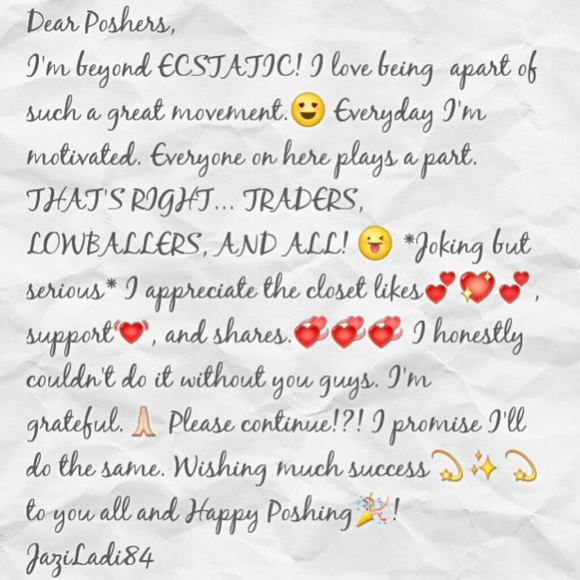 Dear Poshers,
I'm beyond ECSTATIC! I love being  apart of
such a great movement.😍 Everyday I'm
motivated. Everyone on here plays a part.
THAT'S RIGHT... TRADERS,
LOWBALLERS, AND ALL! 😜 *Joking but
serious* I appreciate the closet likes💕💖💕,
support💓, and shares.💞💞💞 I honestly
couldn't do it without you guys. I'm
grateful.🙏 Please continue!?! I promise I'll
do the same. Wishing much success💫✨💫
to you all and Happy Poshing🎉!
JaziLadi84